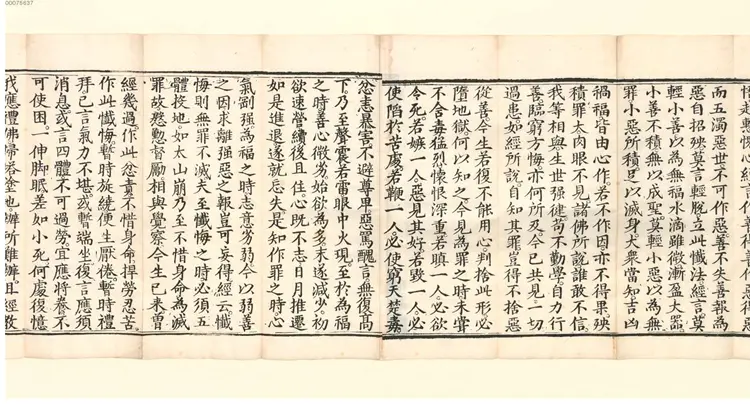 00075637
而五濁惡世不可作惡善不失善報為
惡自招殃莫言輕脫立此懺法經言莫
輕小善以為無福水滴雖微漸盈大器
小善不積無以成聖莫輕小惡以為無
罪小惡所積足以滅身大眾當知吉凶
禍福皆由心作若不作因亦不得果殃
積罪大肉眼不見諸佛所說誰敢不信
我等相與生世强健苟不勤學自力行
善臨窮方悔亦何所及今已共見一切
過患如經所說自知其罪豈得不捨惡
從善今生若復不能用心判捨此形必
墮地獄何以知之今見為罪之時未嘗
不含毒猛烈懷恨深重若瞋一人必欲
令死若嫉一人惡見其好若毀一人必
使陷於苦處若鞭一人必使窮天楚毒
忿恚暴害不避尊卑惡罵醜言無復高
下乃至聲震若雷眼中火現至於為福
之時善心微劣始欲為多末遂減少初
欲速營續後且住心既不志日月推遷
如是進退遂就忘失是知作罪之時心
氣剛强為福之時志意劣弱今以弱善
之因求離强惡之報豈可妄得經云懺
悔則無罪不滅夫至懺悔之時必須五
體投地如太山崩乃至不惜身命為滅
罪故慇懃督勵相與覺察今生已來曾
經幾過作此忿責不惜身命捍勞忍苦
作此懺悔暫時旋繞便生厭倦暫時禮
拜已言氣力不堪或暫端坐復言應須
消息或言四體不可過勞宜應將養不
可使困一伸脚眠差如小死何處復憶
我應禮佛掃塔塗地辦所難辦且經教